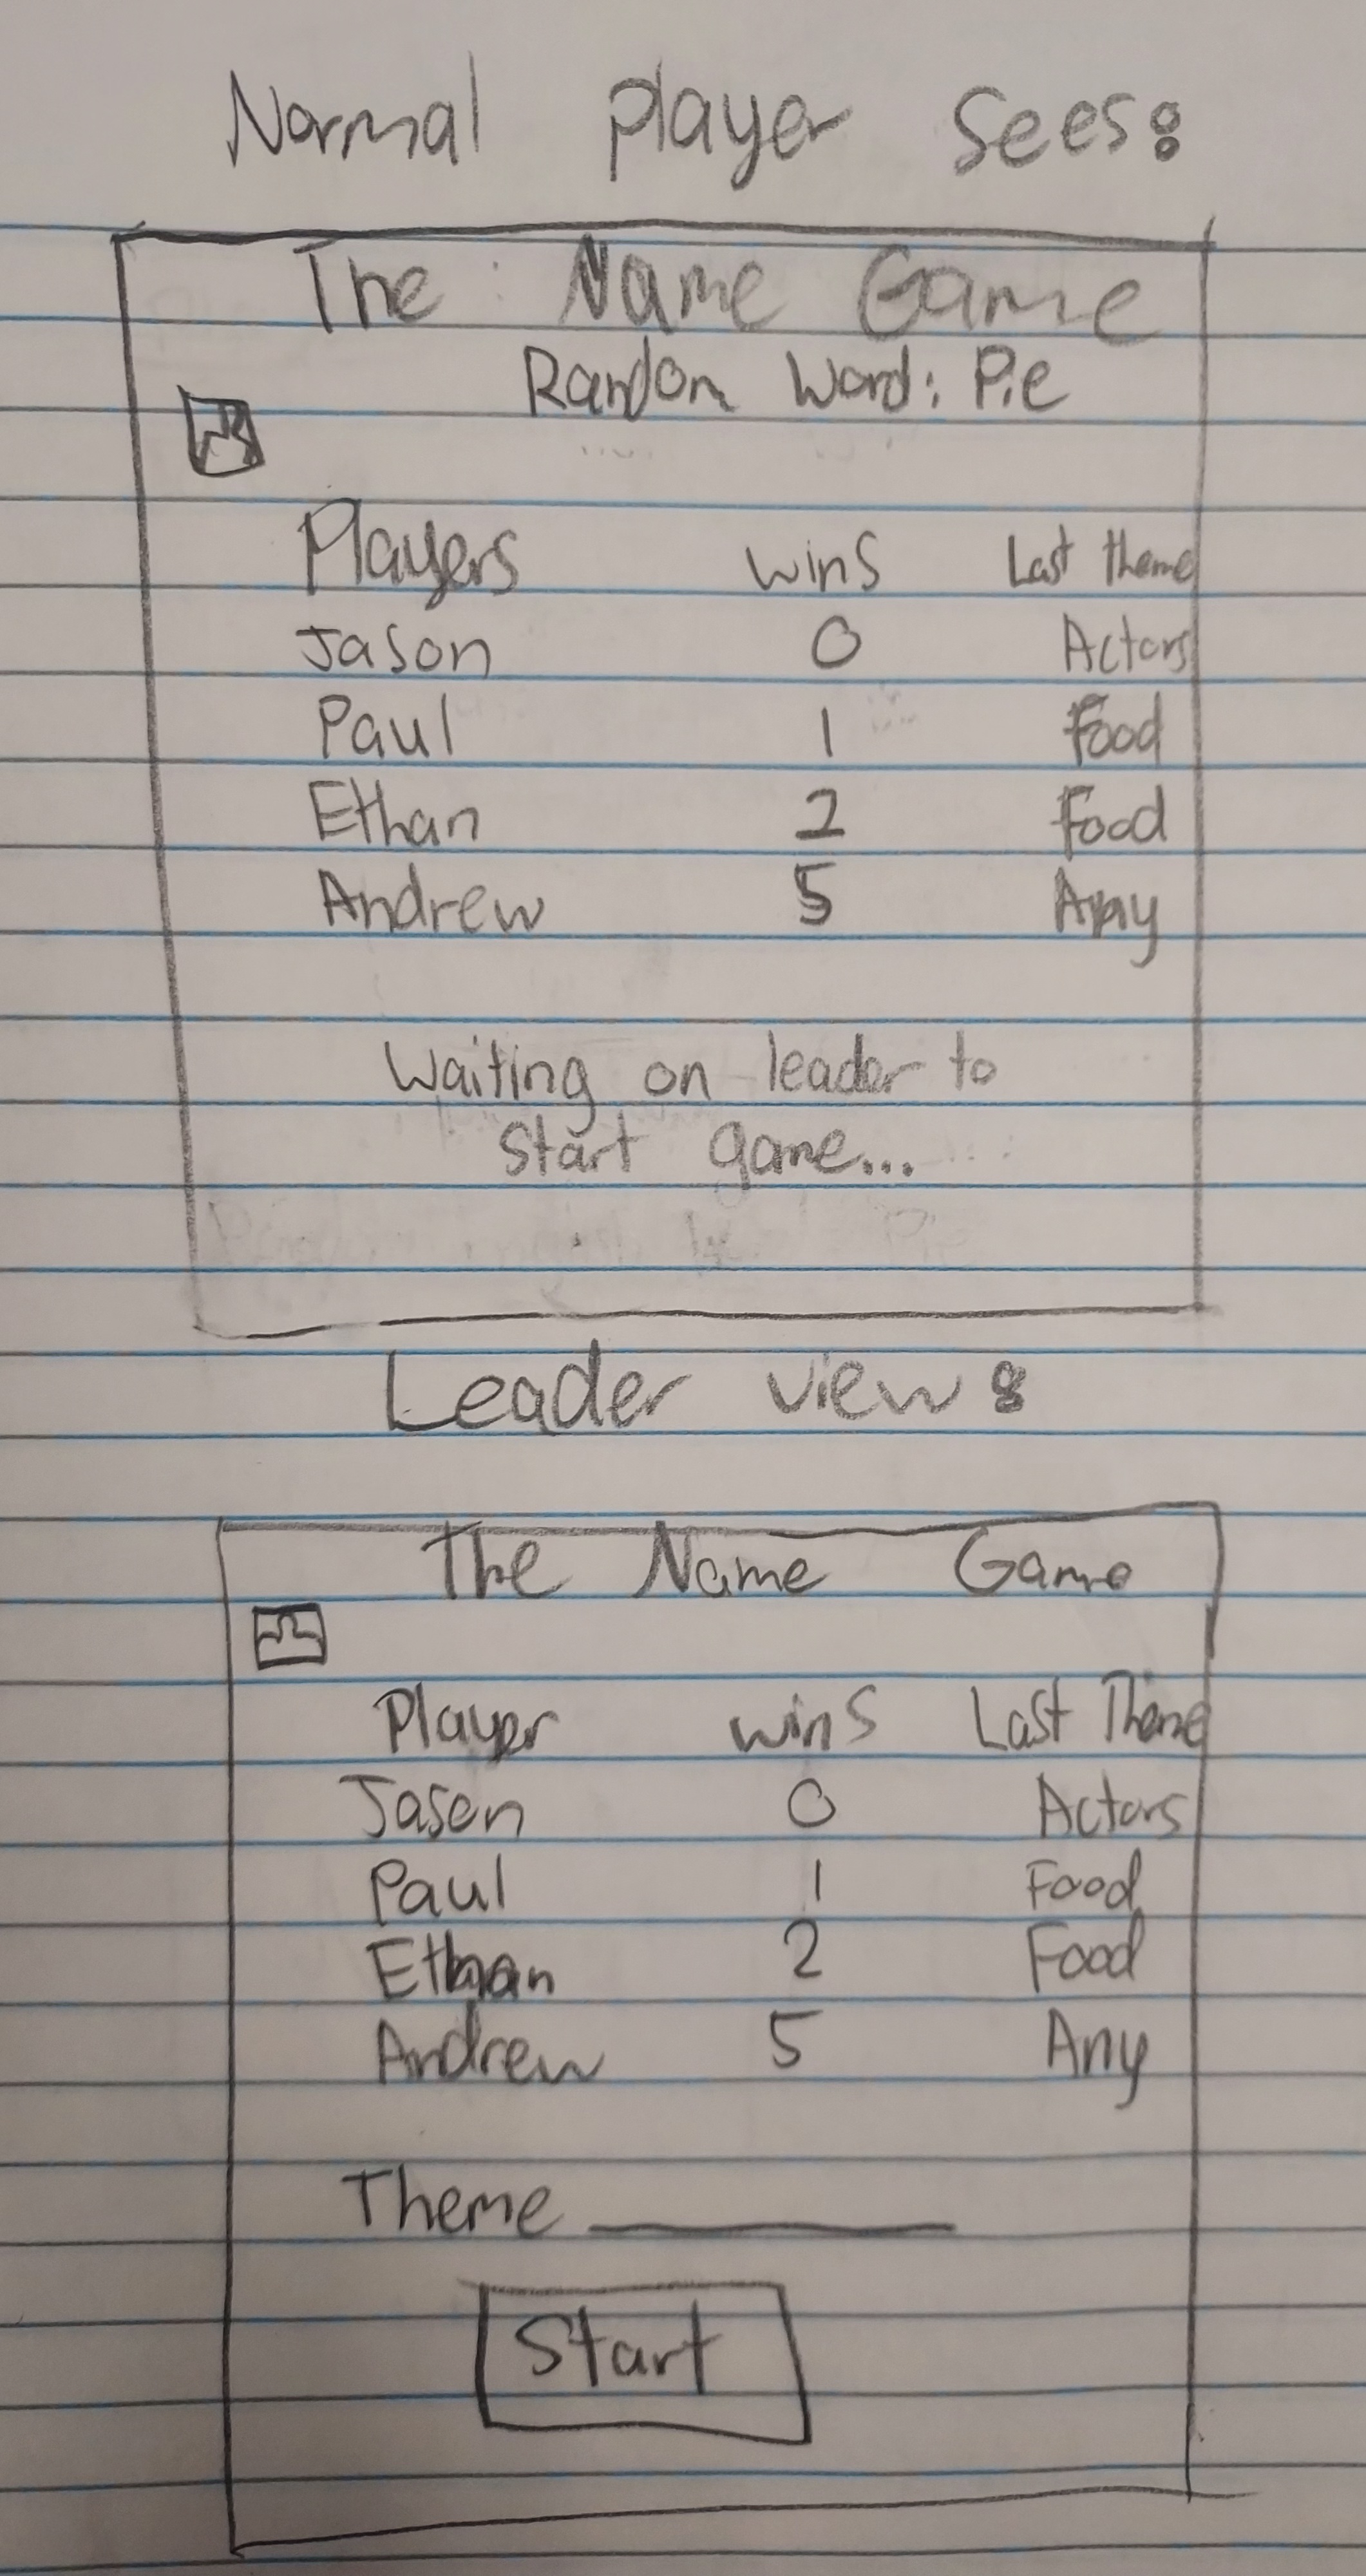 Normal player sees:
The Name Game
Random Word: Pie
Players wins Last theme
Jason 0 Actors
Paul 1 Food
Ethan 2 Food
Andrew 5 Any
Waiting on leader to
start game...
Leader view:
The Name Game
Player wins Last Theme
Jason 0 Actors
Paul 1 Food
Ethan 2 Food
Andrew 5 Any
Theme
Start